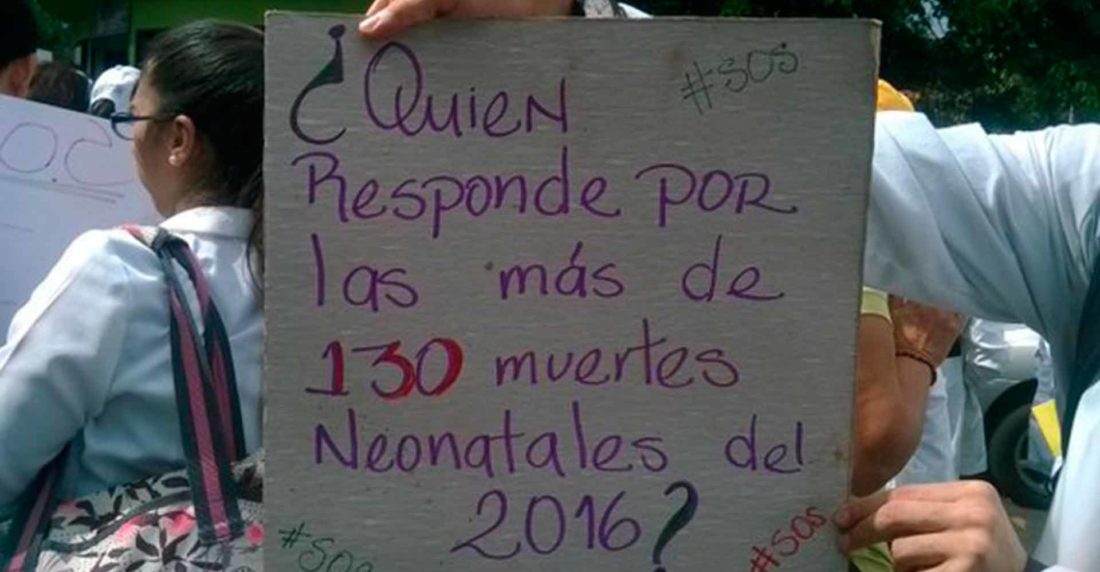 ¿Quien
#SOS
Responde POR
las más de
130 muertes
Neonatales del
2016?
#SOS
#SOS
O.C